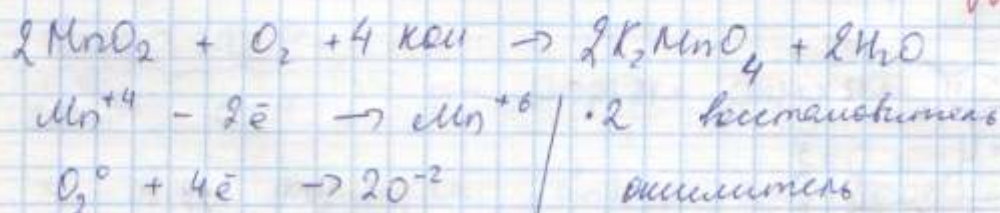 2MnO₂ + O₂ + 4 KOH → 2K₂MnO₄ + 2H₂O
Mn⁺⁴ - 2ē → Mn⁺⁶ | ·2 восстановитель
O₂⁰ + 4ē → 2O⁻² | окислитель